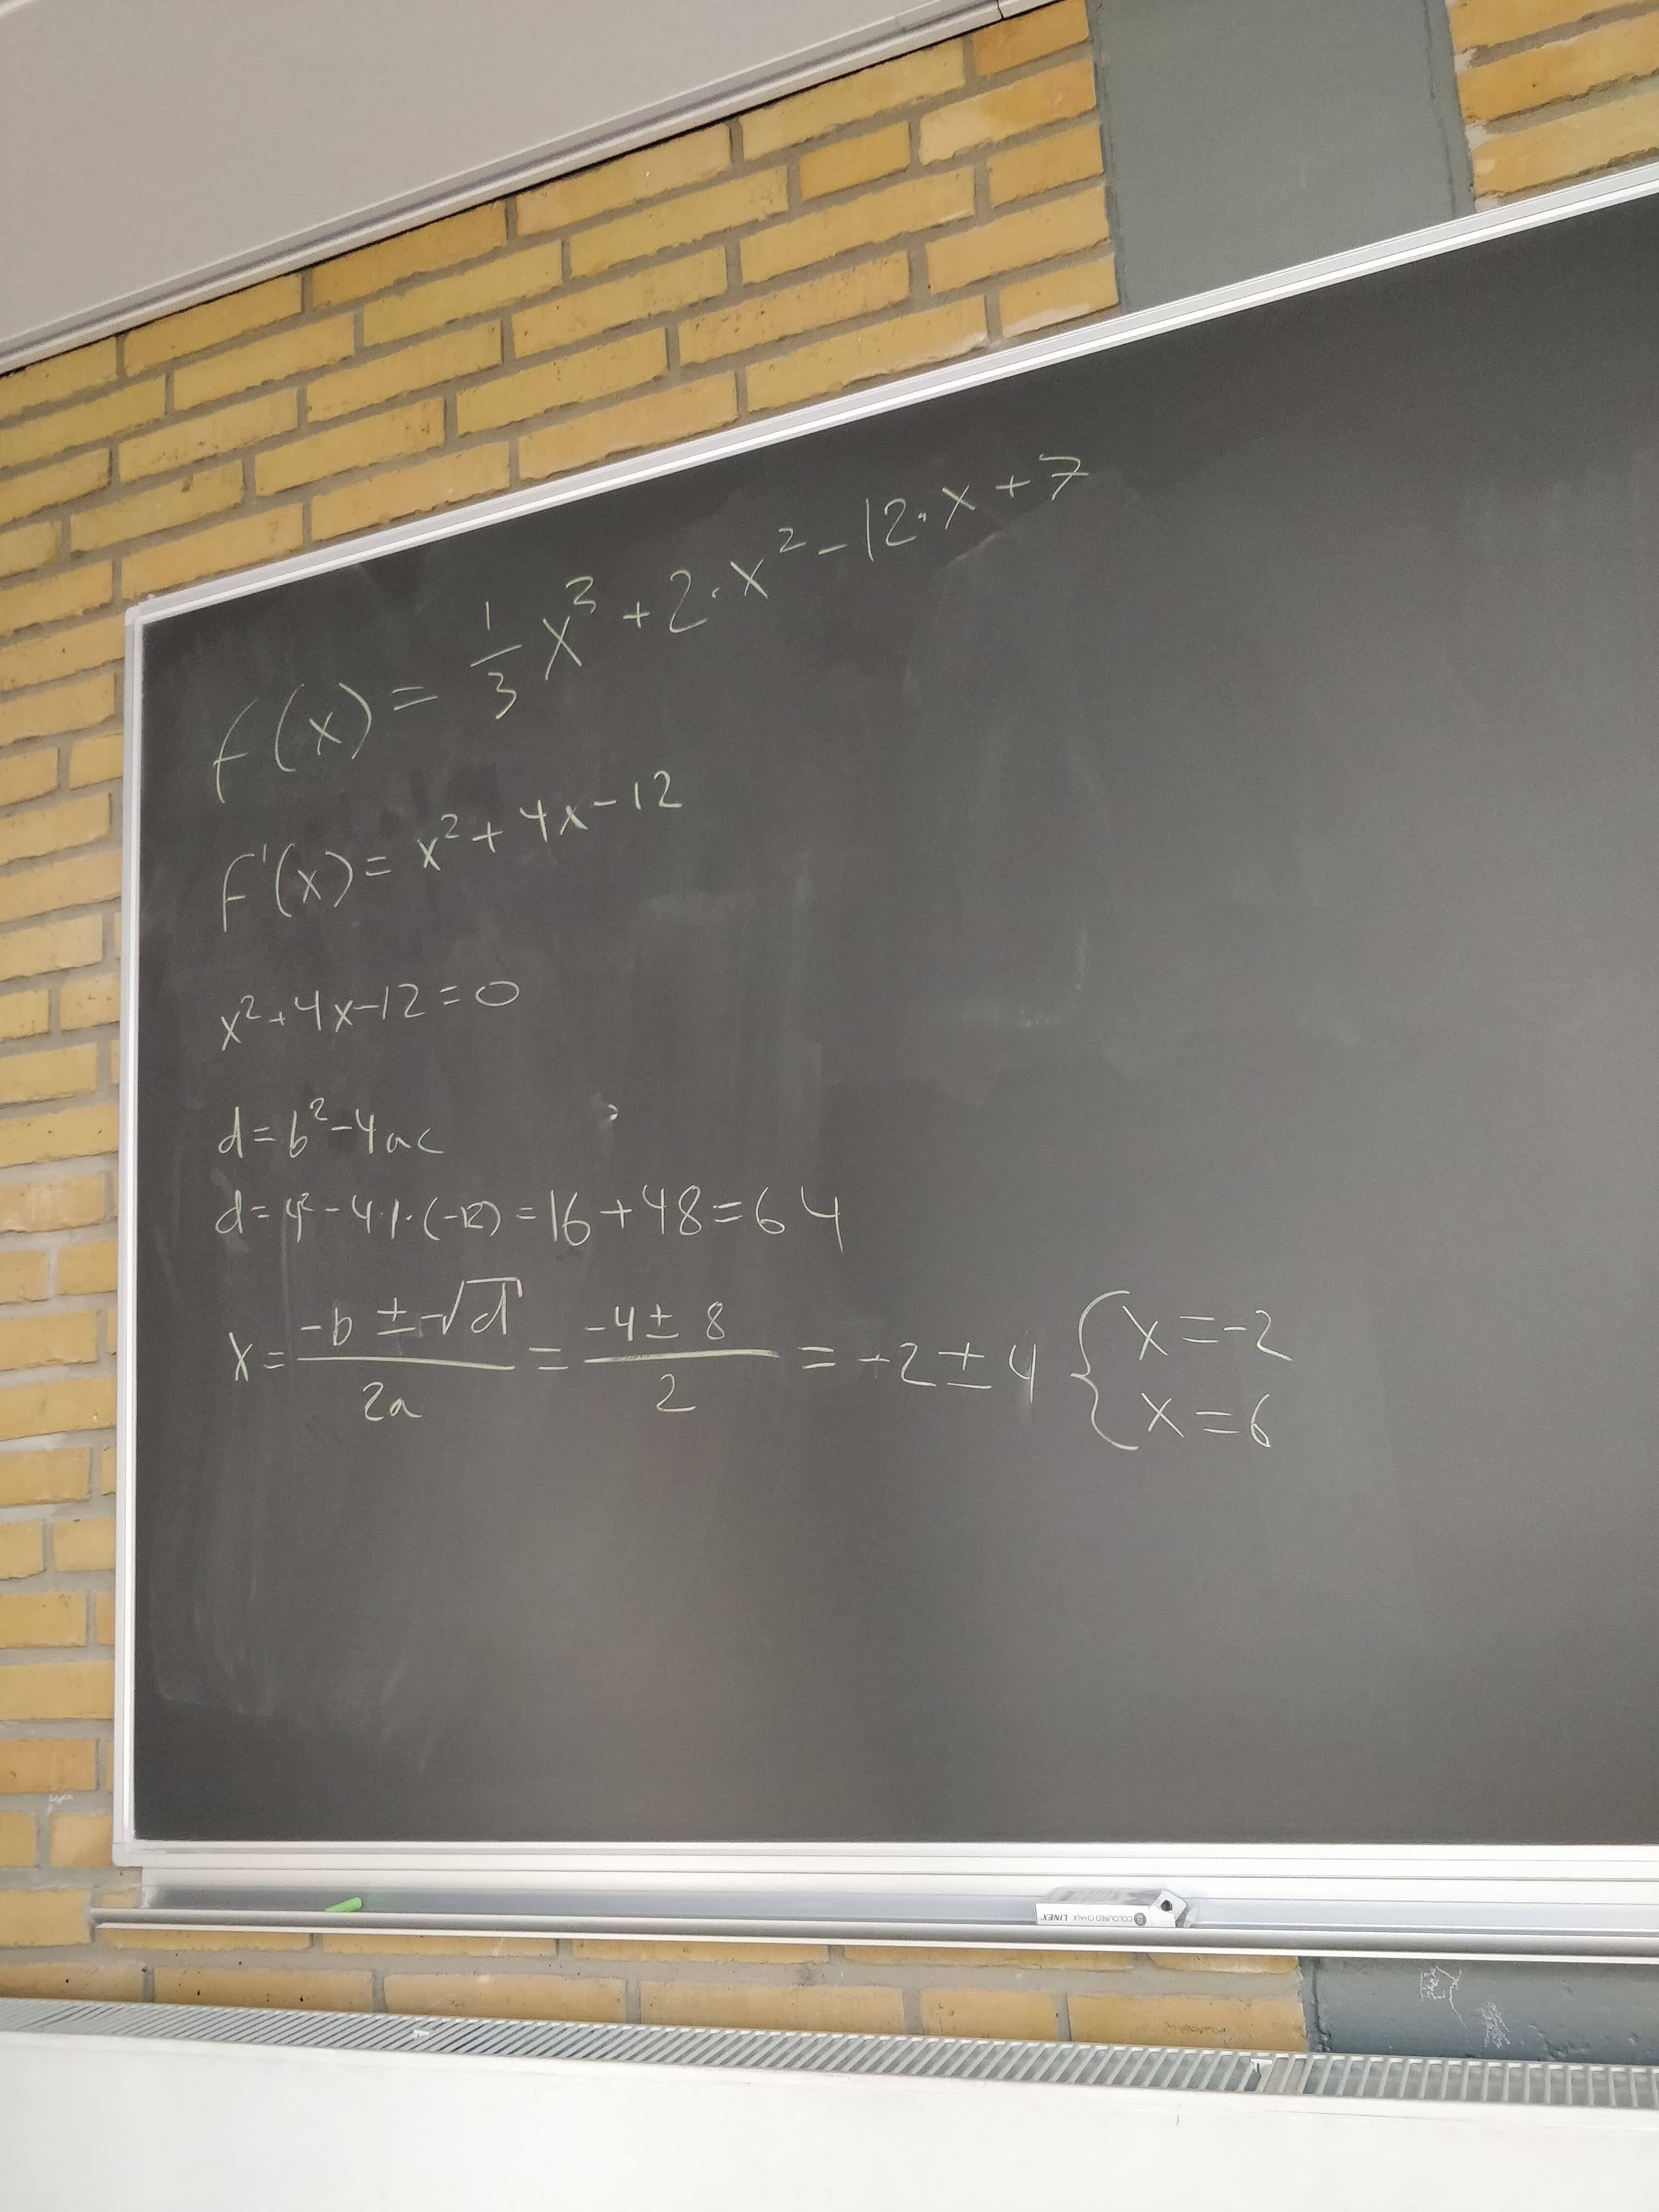 f(x) = 1/3 x³ + 2·x² - 12·x + 7
f'(x) = x² + 4x - 12
x² + 4x - 12 = 0
d = b² - 4ac
d = 4² - 4·1·(-12) = 16 + 48 = 64
x = (-b ± √d)/2a = (-4 ± 8)/2 = -2 ± 4 { x = -2
x = 6
COLOURED CHALK LINEX